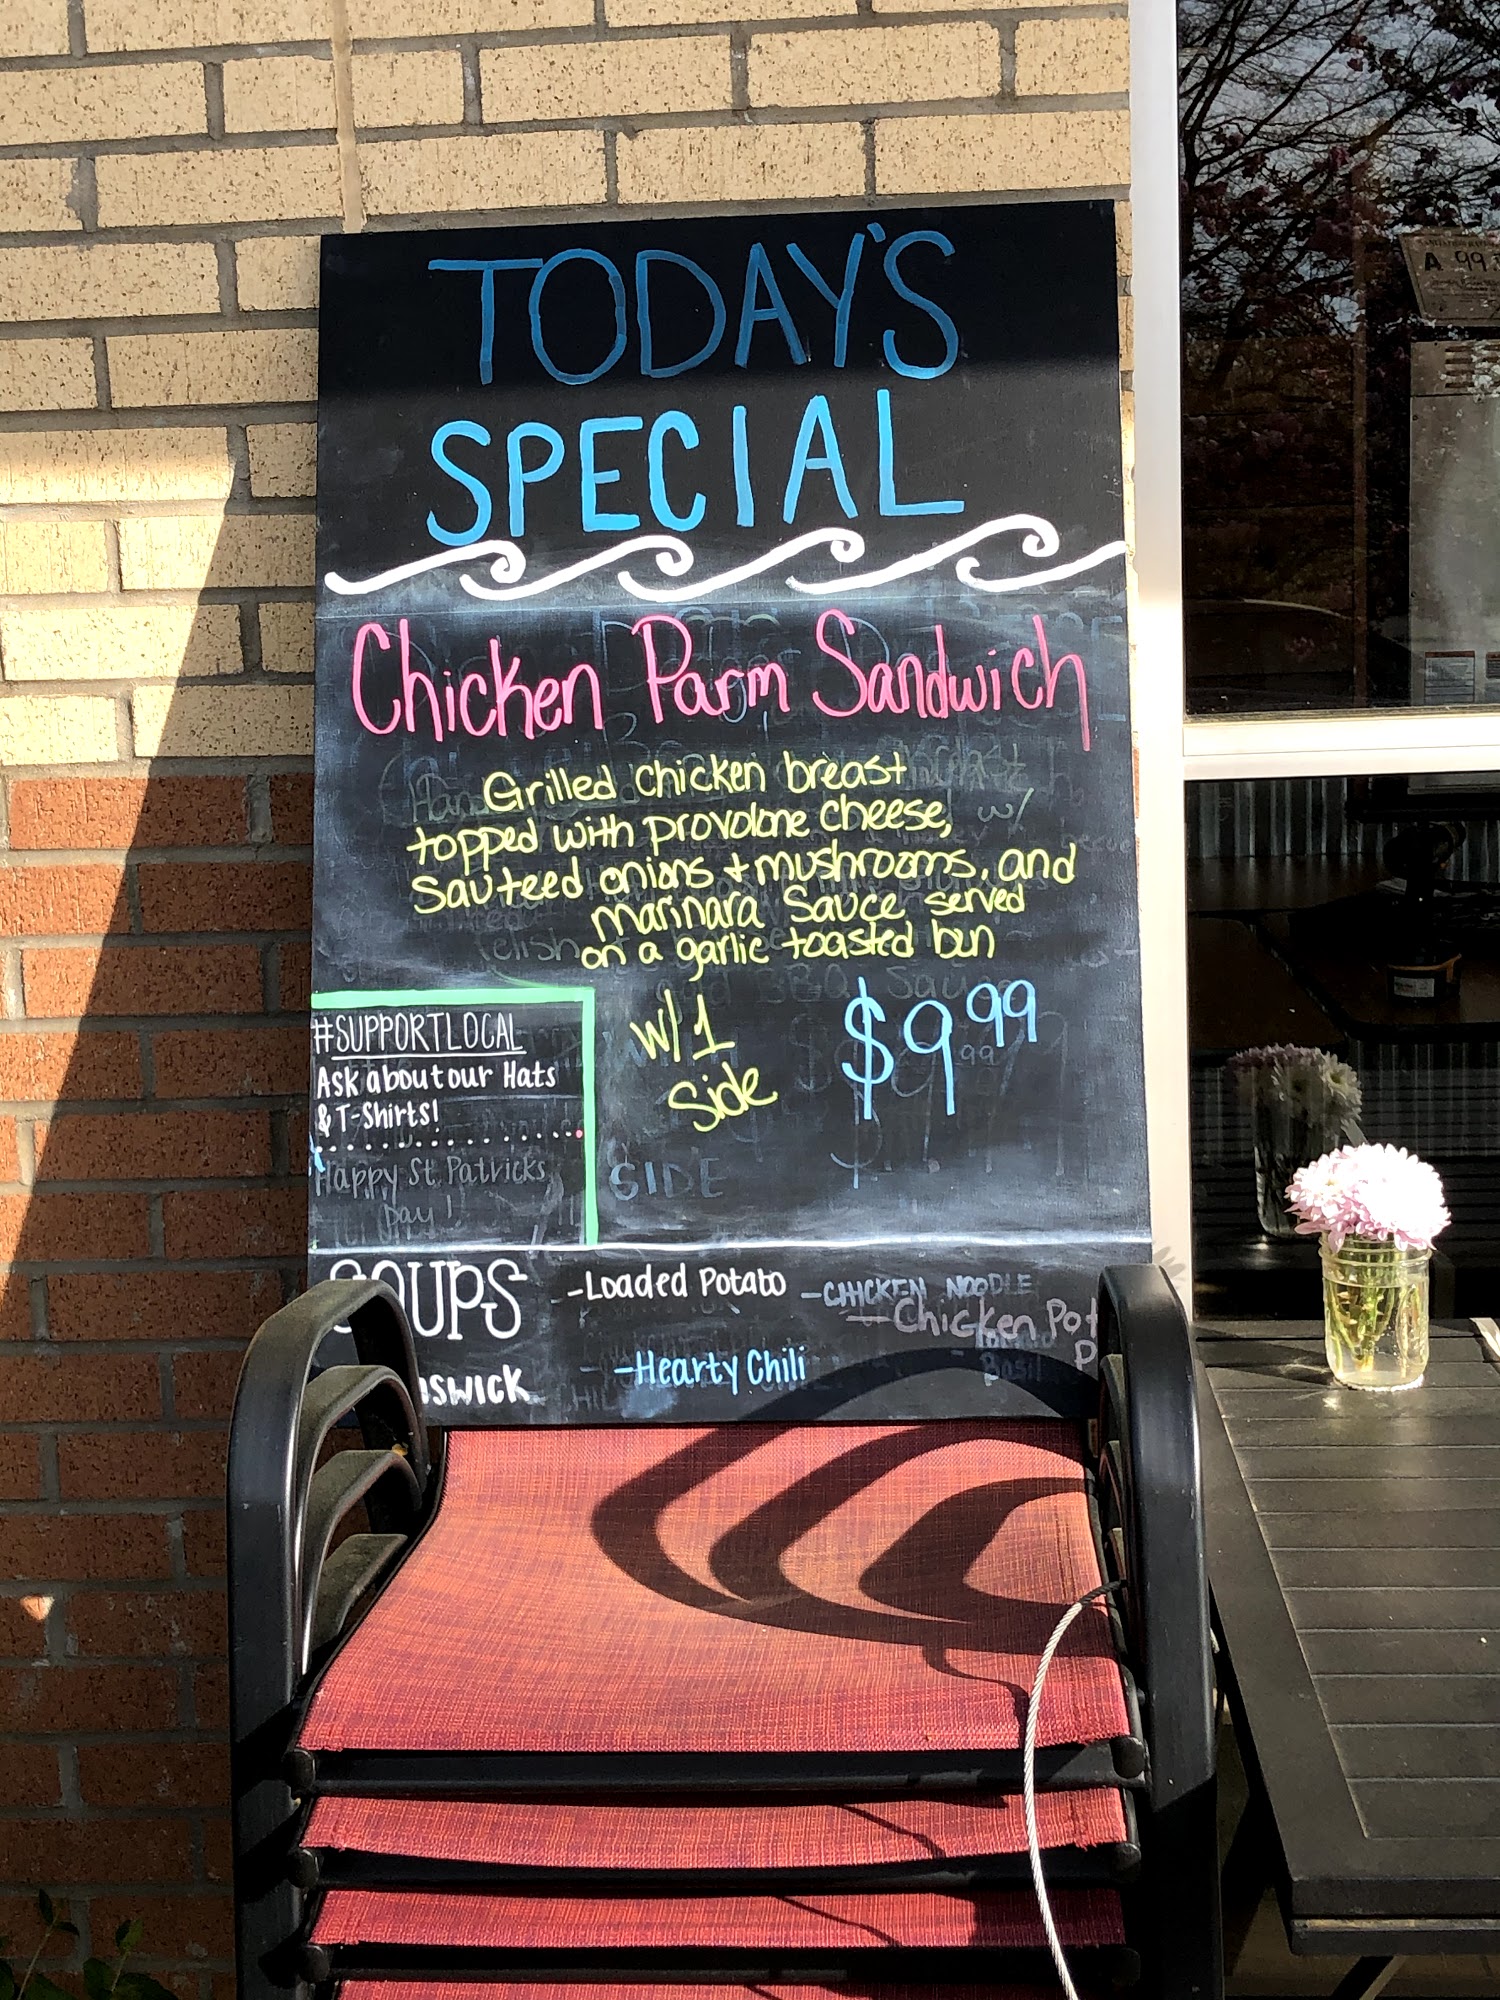 TODAY'S
SPECIAL
Chicken Parm Sandwich
Grilled chicken breast
topped with provolone cheese,
sauteed onions + mushrooms, and
marinara sauce served
on a garlic toasted bun
w/ 1
Side
$9.99
#SUPPORTLOCAL
Ask about our Hats
& T-Shirts!
Happy St Patricks
Day!
SIDE
SOUPS
-Loaded Potato
-CHICKEN NOODLE
-Chicken Pot
-Hearty Chili
Basil